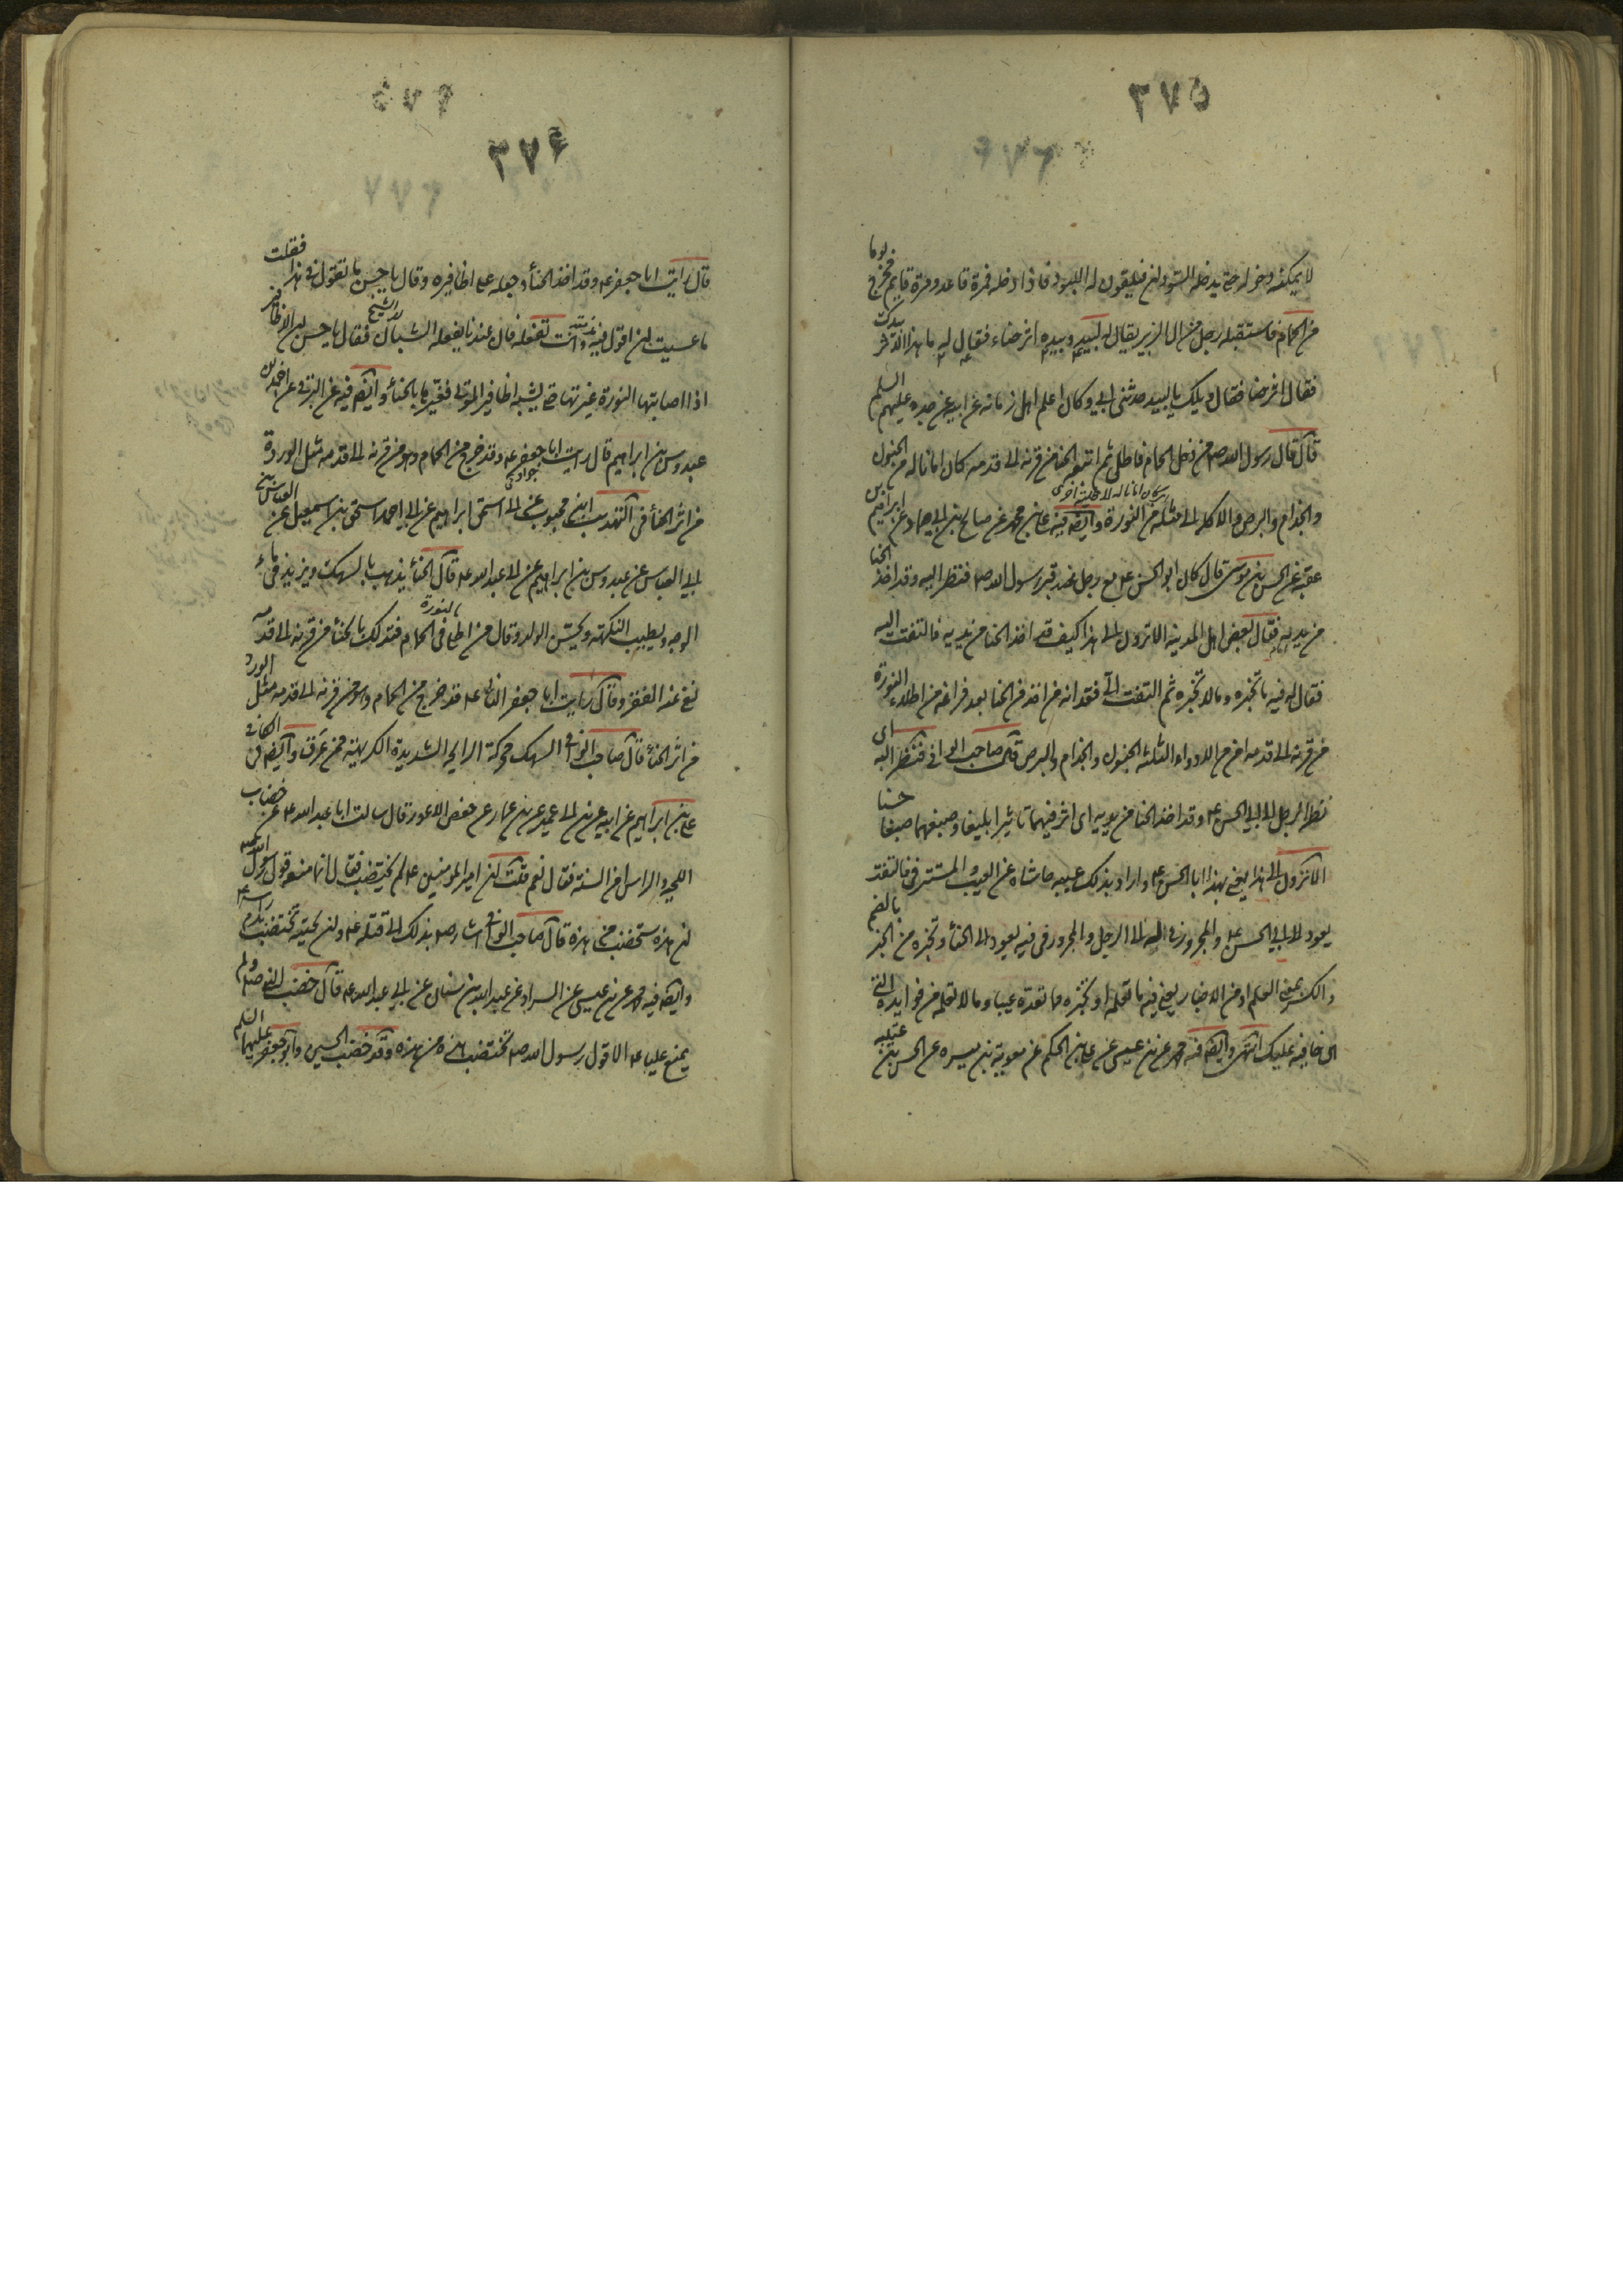 ٣٧٥
لا يمكنه دخوله حتى يدخله السود لان فليقون له اللبود فاذا دخله فمرة قاعد ومرة قايم فخرج يوما
من الحمام فاستقبله رجل من ال الزبير يقال له لبيد وبيده اثر حناء فقال له ما هذا الاثر بيدك
فقال اثر حنا فقال ويلك يا لبيد حدثني ابي وكان اعلم اهل زمانه عن ابيه عن جده عليهم السلم
قال قال رسول الله ص من دخل الحمام فاطلى ثم اتبعه بالحنا من قرنه الى قدمه كان امانا له من الجنون
والجذام والبرص والاكلة الى مثله من النورة وايضه فيه علي بن محمد عن صالح بن ابي حماد عن ابراهيم بن
عقبة عن الحسن بن موسى قال كان ابو الحسن ع مع رجل عند قبر رسول الله ص فنظر اليه وقد اخذ الحنا
من يديه فقال بعض اهل المدينة الا ترون الى هذا كيف قد اخذ الحنا من يديه فالتفت اليه
فقال له فيه ما تخبره وما لا تخبره ثم التفت الي فقد انه من اخذ من الحنا بعد فراغه من اطلاء النورة
من قرنه الى قدمه امن من الادواء الثلثه الجنون والجذام والبرص قال صاحب الوافي فنظر اليه اى
نظر الرجل الى ابي الحسن ع وقد اخذ الحنا من يديه اى اثر فيهما تاثيرا بليغا وصبغهما صبغا حسنا
الا ترون الى هذا يعني بهذا ابا الحسن ع واراد بذلك عيبه حاشاه عن العيب والمستتر في فالتفت
يعود الى ابي الحسن ع والمجرور في اليه الى الرجل والمجرور في فيه يعود الى الحنا وتخبره من الخبر بالضم
والكسر بمعنى العلم او من الاخبار يعني فيه ما تعلمه او تخبره مما تعده عيبا وما لا تعلمه من فوايده التي
هي خافيه عليك انتهى وايضه فيه محمد عن بن عيسى عن علي بن الحكم عن معوية بن ميسره عن الحسن بن عتيبه
٣٧۶
قال رايت ابا جعفر ع وقد اخذ الحناء وجعله على اظافيره وقال يا حسن ما تقول في هذا فقلت
ما عسيت ان اقول فيه وانت تفعله فان عندنا يفعله الشبان فقال يا حسن ان الاظافير
اذا اصابتها النورة غيرتها حتى يشبه اظافير الموتى فغيرها بالحناء وايضه فيه عن البرقي عن احمد بن
عبدوس بن ابراهيم قال رايت ابا جعفر ع وقد خرج من الحمام وهو من قرنه الى قدمه مثل الوردة
من اثر الحناء في التهذيب ابن محبوب عن ابي اسحق ابراهيم عن ابي احمد اسحق بن اسمعيل عن العباس بن
ابي العباس عن عبدوس بن ابراهيم عن ابي عبد الله ع قال الحناء يذهب بالسهك ويزيد في ماء
الوجه ويطيب النكهة ويحسن الولد وقال من اطلى في الحمام فتدلك بالحناء من قرنه الى قدمه
نفى عنه الفقر وقال رايت ابا جعفر الثاني ع قد خرج من الحمام وهو من قرنه الى قدمه مثل الورد
من اثر الحناء قال صاحب الوافي السهك محركة الرايحة الشديدة الكريهة ممن عرق وايضه في الكافي
علي بن ابراهيم عن ابيه عن بن ابي عمير عن بن عمار عن حفص الاعور قال سالت ابا عبد الله ع عن خضاب
اللحية والراس امن السنة فقال نعم قلت ان امير المومنين ع لم يختضب فقال انما منعه قول رسول الله ص
ان هذه ستخضب من هذه قال صاحب الوافي اشار ص بذلك الى قتله ع وان لحيته تختضب بدم راسه ع
وايضه فيه محمد عن بن عيسى عن السراد عن عبد الله بن سنان عن ابي عبد الله ع قال خضب النبي ص ولم
يمنع عليا ع الا قول رسول الله ص تختضب هذه من هذه وقد خضب الحسين وابو جعفر عليهما السلم